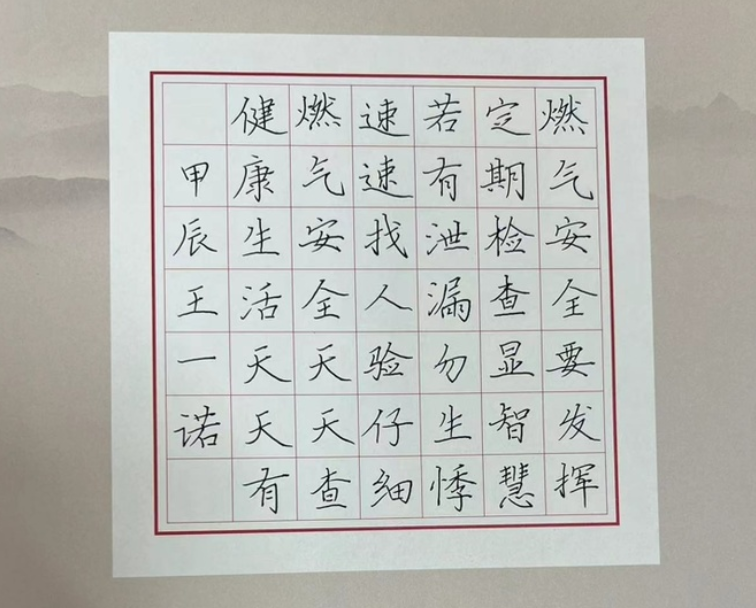 燃气安全要发挥
定期检查显智慧
若有泄漏勿生悸
速速找人验仔细
燃气安全天天查
健康生活天天有
甲辰王一诺